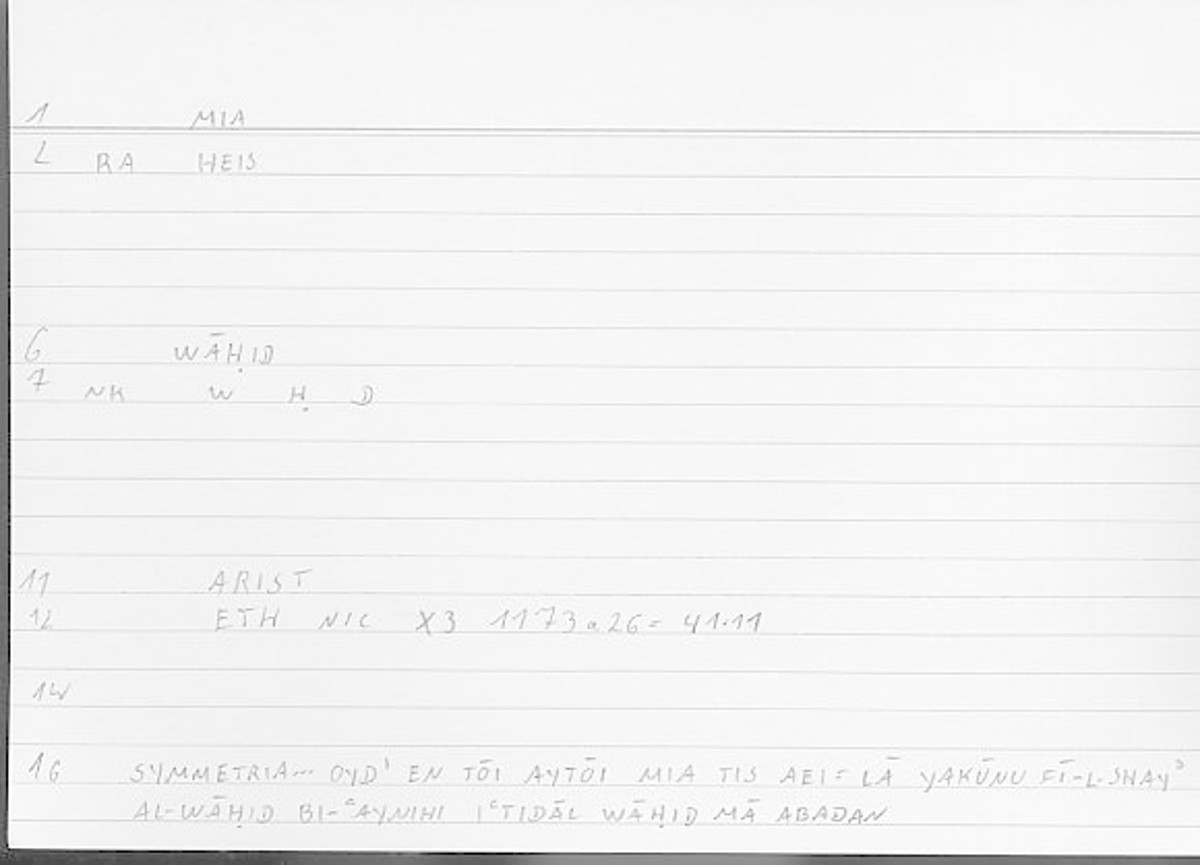 1 MIA
2 RA HEIS
6 WĀḤID
7 NK W Ḥ D
11 ARIST
12 ETH NIC X3 1173a26= 41.11
14
16 SYMMETRIA... OYD' EN TŌI AYTŌI MIA TIS AEI= LĀ YAKŪNU FĪ-L-SHAYʾ
AL-WĀḤID BI-ʿAYNIHI IʿTIDĀL WĀḤID MĀ ABADAN